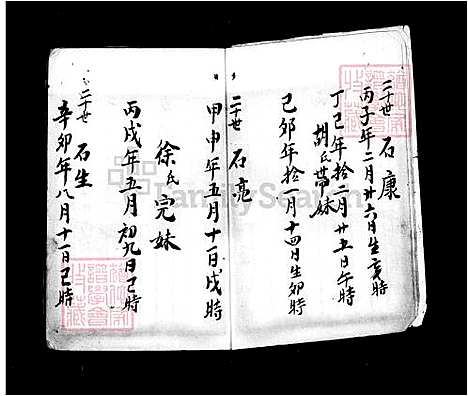 二十世 石康
丙子年二月廿六日生亥時
丁巳年拾二月廿五日午時
胡氏帶妹
己卯年拾一月十四日生卯時
二十世 石亮
甲申年五月十一日戌時
徐氏完妹
丙戌年五月初九日巳時
二十世 石生
辛卯年八月十一日巳時
FamilySearch